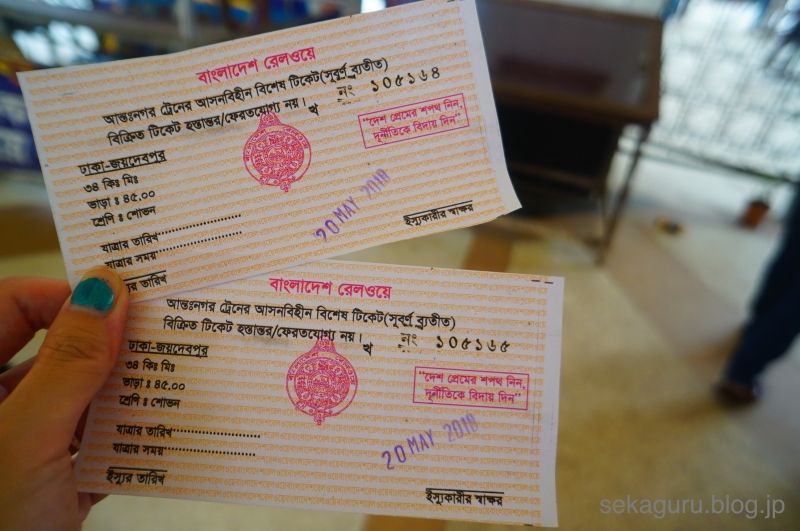 বাংলাদেশ রেলওয়ে
আন্তঃনগর ট্রেনের আসনবিহীন বিশেষ টিকেট(সুবর্ণ ব্যতীত)
বিক্রিত টিকেট হস্তান্তর/ফেরতযোগ্য নয়।
খ নং ১০৫১৬৪
"দেশ প্রেমের শপথ নিন,
দূর্নীতিকে বিদায় দিন"
ঢাকা-জয়দেবপুর
৩৪ কিঃ মিঃ
ভাড়া ঃ ৪৫.০০
শ্রেণি ঃ শোভন
যাত্রার তারিখ
যাত্রার সময়
ইস্যুর তারিখ
20 MAY 2018
ইস্যুকারীর স্বাক্ষর
বাংলাদেশ রেলওয়ে
আন্তঃনগর ট্রেনের আসনবিহীন বিশেষ টিকেট(সুবর্ণ ব্যতীত)
বিক্রিত টিকেট হস্তান্তর/ফেরতযোগ্য নয়।
খ নং ১০৫১৬৫
"দেশ প্রেমের শপথ নিন,
দূর্নীতিকে বিদায় দিন"
ঢাকা-জয়দেবপুর
৩৪ কিঃ মিঃ
ভাড়া ঃ ৪৫.০০
শ্রেণি ঃ শোভন
যাত্রার তারিখ
যাত্রার সময়
ইস্যুর তারিখ
20 MAY 2018
ইস্যুকারীর স্বাক্ষর
sekaguru.blog.jp